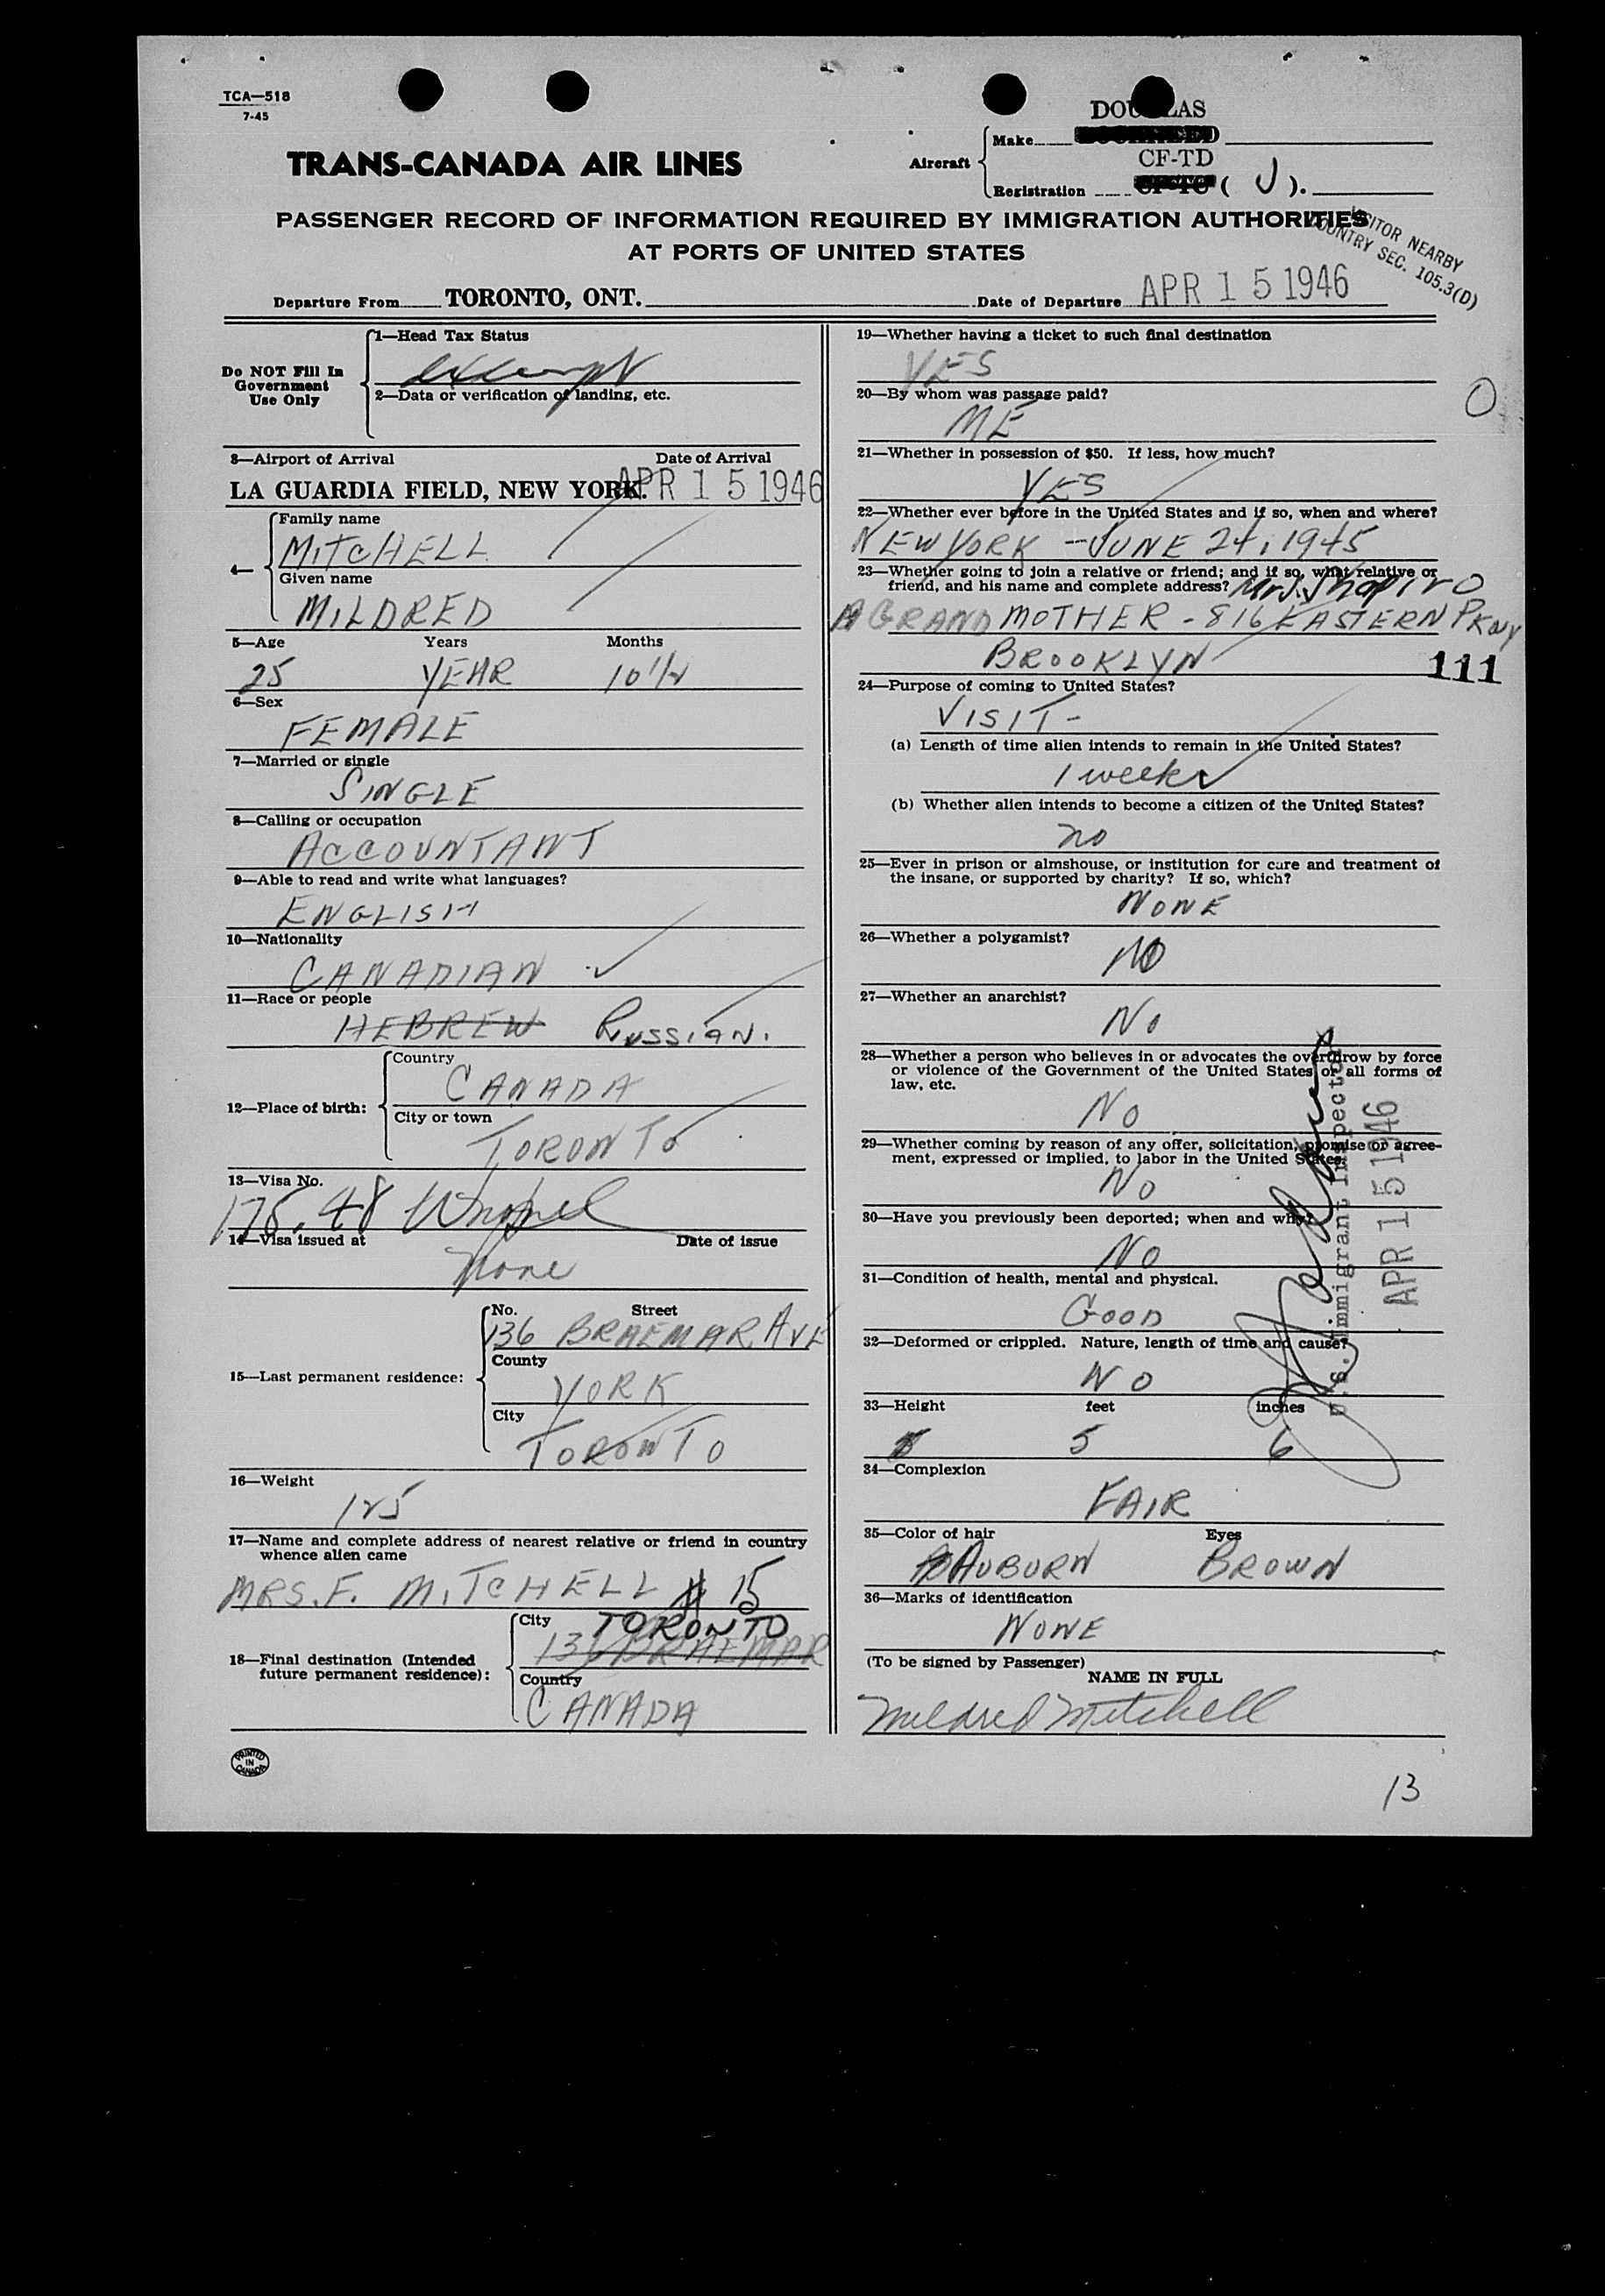 TCA—518
7-45
TRANS-CANADA AIR LINES
Aircraft
DOUGLAS
Make
CF-TD
Registration ( J ).
PASSENGER RECORD OF INFORMATION REQUIRED BY IMMIGRATION AUTHORITIES
AT PORTS OF UNITED STATES
VISITOR NEARBY
COUNTRY SEC. 105.3(D)
Departure From TORONTO, ONT. Date of Departure APR 15 1946
Do NOT Fill In
Government
Use Only
1—Head Tax Status
exempt
2—Data or verification of landing, etc.
3—Airport of Arrival Date of Arrival
LA GUARDIA FIELD, NEW YORK. APR 15 1946
4—
Family name
MITCHELL
Given name
MILDRED
5—Age Years Months
25 YEAR 10 1/2
6—Sex
FEMALE
7—Married or single
SINGLE
8—Calling or occupation
ACCOUNTANT
9—Able to read and write what languages?
ENGLISH
10—Nationality
CANADIAN
11—Race or people
HEBREW RUSSIAN.
12—Place of birth:
Country
CANADA
City or town
TORONTO
13—Visa No.
175.48
14—Visa issued at Date of issue
None
15—Last permanent residence:
No. Street
136 BRAEMAR AVE
County
YORK
City
TORONTO
16—Weight
125
17—Name and complete address of nearest relative or friend in country
whence alien came
MRS. F. MITCHELL # 15
18—Final destination (Intended
future permanent residence):
City TORONTO
136 BRAEMAR
Country
CANADA
PRINTED
IN
CANADA
19—Whether having a ticket to such final destination
YES
20—By whom was passage paid?
ME
O
21—Whether in possession of $50. If less, how much?
YES
22—Whether ever before in the United States and if so, when and where?
NEW YORK - JUNE 24, 1945
23—Whether going to join a relative or friend; and if so, what relative or
friend, and his name and complete address? Mrs. Shapiro
A GRANDMOTHER - 816 EASTERN PKWY
BROOKLYN
111
24—Purpose of coming to United States?
VISIT -
(a) Length of time alien intends to remain in the United States?
1 week
(b) Whether alien intends to become a citizen of the United States?
no
25—Ever in prison or almshouse, or institution for care and treatment of
the insane, or supported by charity? If so, which?
NONE
26—Whether a polygamist?
NO
27—Whether an anarchist?
NO
28—Whether a person who believes in or advocates the overthrow by force
or violence of the Government of the United States or all forms of
law, etc.
NO
29—Whether coming by reason of any offer, solicitation, promise or agree-
ment, expressed or implied, to labor in the United States.
NO
30—Have you previously been deported; when and why?
NO
31—Condition of health, mental and physical.
GOOD
32—Deformed or crippled. Nature, length of time and cause?
NO
33—Height feet inches
5 6
34—Complexion
FAIR
35—Color of hair Eyes
AUBURN BROWN
36—Marks of identification
NONE
(To be signed by Passenger)
NAME IN FULL
Mildred Mitchell
U.S. Immigrant Inspector
APR 15 1946
13